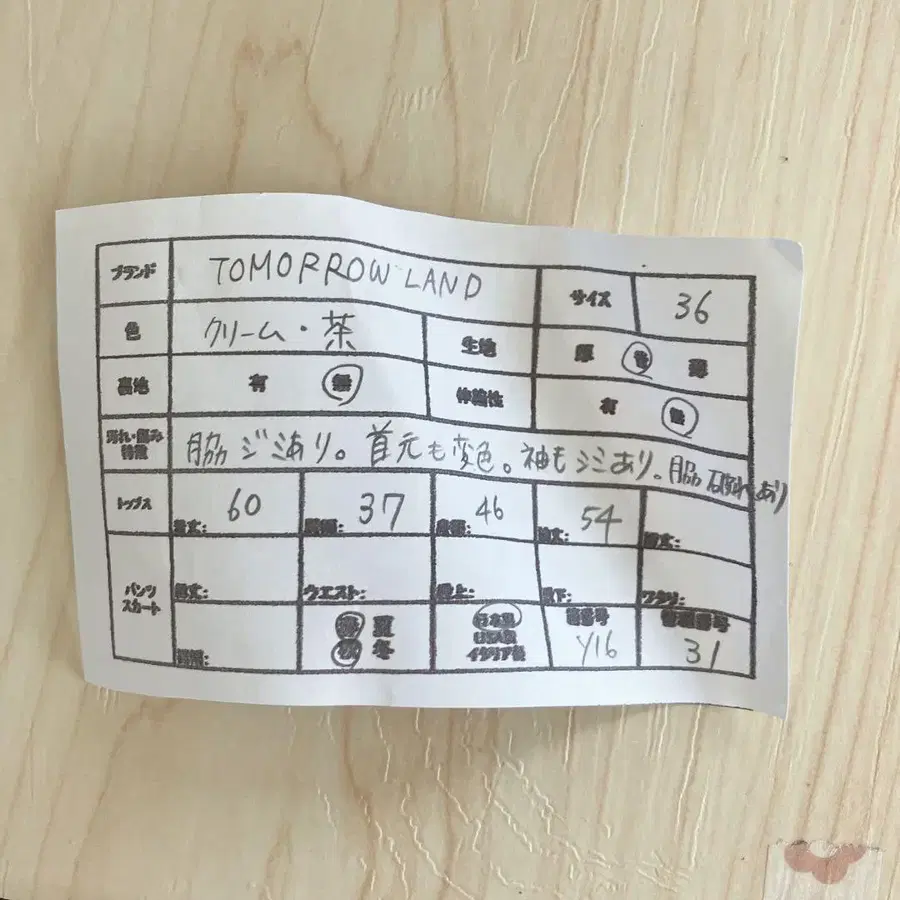 ブランド TOMORROW LAND サイズ 36
色 クリーム・茶 生地 厚 普 薄
裏地 有 無 伸縮性 有 無
汚れ・傷み 脇シミあり。首元も変色。袖もシミあり。脇破れあり
特徴
トップス 着丈: 60 肩幅: 37 身幅: 46 袖丈: 54 裄丈:
パンツ
スカート 総丈: ウエスト: 股上: 股下: ワタリ:
裾幅: 春 夏 日本製 箱番号 管理番号
秋 冬 USA製 Y16 31
イタリア製